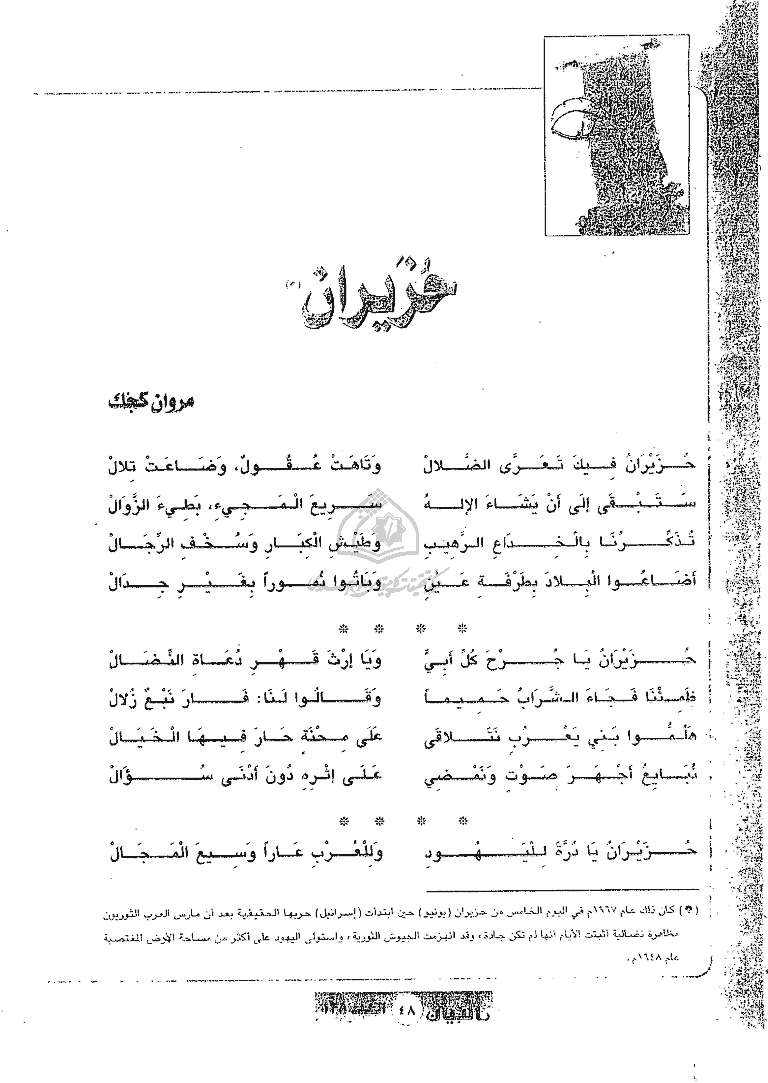 حُزَيران (*)
مروان كجك
حُزَيْرَانُ فِيكَ تَعَرَّى الضَّلالْ وَتَاهَتْ عُقُولٌ، وَضَاعَتْ تِلالْ
سَتَبْقَى إلى أنْ يَشَاءَ الإلهُ سَرِيعَ الْمَجِيءِ، بَطِيءَ الزَّوَالْ
تُذَكِّرُنَا بِالْخِدَاعِ الرَّهِيبِ وَطَيْشِ الْكِبَارِ وَسُخْفِ الرِّجَالْ
أضَاعُوا الْبِلادَ بِطَرْفَةِ عَيْنٍ وَبَاتُوا نُمُوراً بِغَيْرِ جِدَالْ
* * * *
حُزَيْرَانُ يَا جُرْحَ كُلِّ أبِيٍّ وَيَا إرْثَ قَهْرِ دُعَاةِ النِّضَالْ
ظَمِئْنَا فَجَاءَ الشَّرَابُ حَمِيماً وَقَالُوا لَنَا: فَارَ نَبْعٌ زُلالْ
هَلُمُّوا بَنِي يَعْرُبٍ نَتَلاقَى عَلَى مِحْنَةٍ حَارَ فِيهَا الْخَيَالْ
نُبَايِعُ أجْهَرَ صَوْتٍ وَنَمْضِي عَلَى إثْرِهِ دُونَ أدْنَى سُؤَالْ
* * * *
حُزَيْرَانُ يَا دُرَّةً لِلْيَهُودِ وَلِلْعُرْبِ عَاراً وَسِيعَ الْمَجَالْ
(*) كان ذلك عام ١٩٦٧م في اليوم الخامس من حزيران (يونيو) حين ابتدأت (إسرائيل) حربها الحقيقية بعد أن مارس العرب الثوريون
مظاهرة نضالية أثبتت الأيام أنها لم تكن جادة، وقد انهزمت الجيوش الثورية، واستولى اليهود على أكثر من مساحة الأرض المغتصبة
عام ١٩٤٨م.
البيان ٤٨ العدد ١٣٨